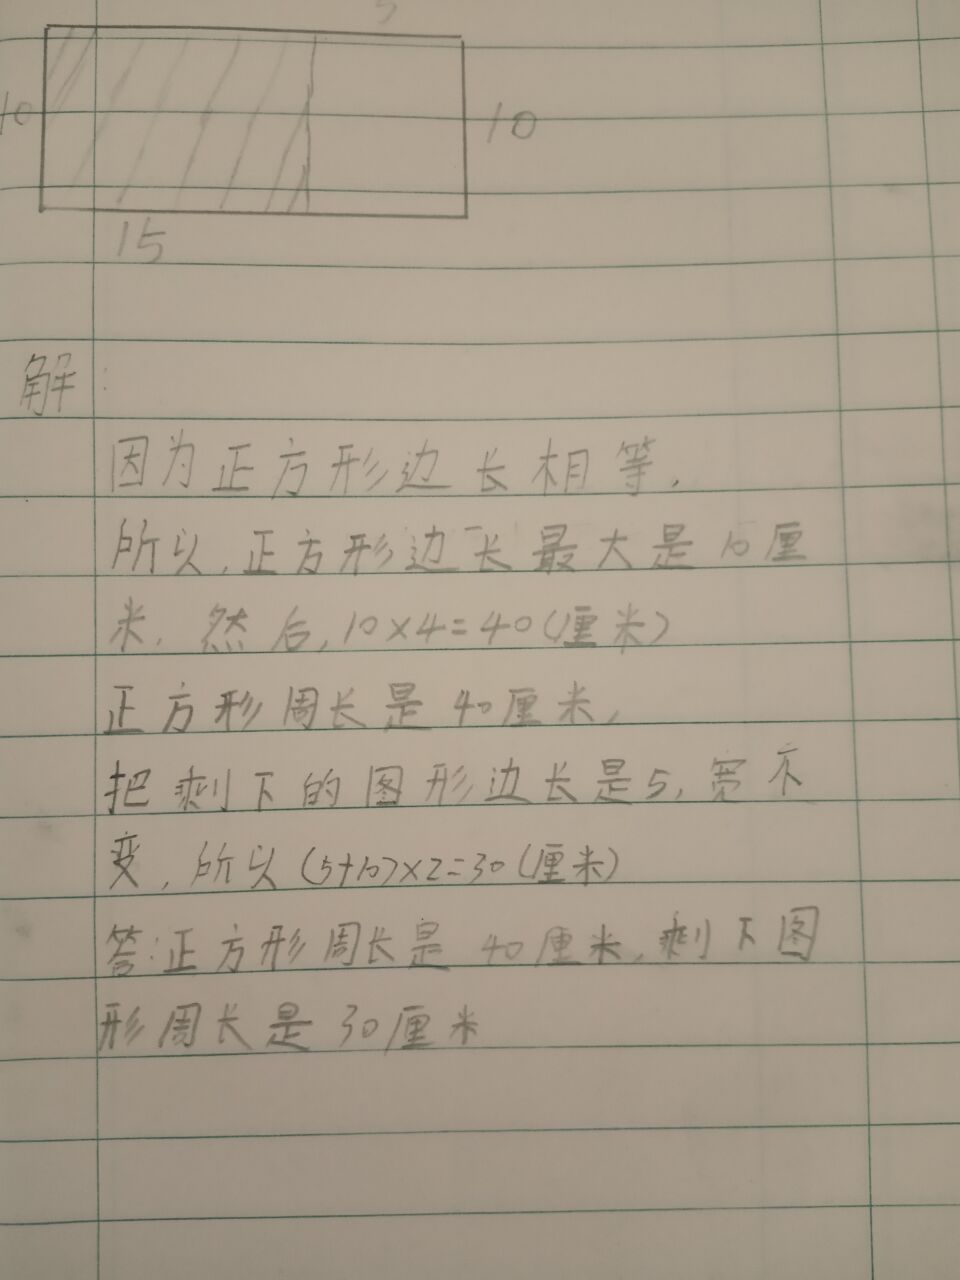 5
10
10
15
解:
因为正方形边长相等,
所以,正方形边长最大是10厘
米.然后,10×4=40(厘米)
正方形周长是40厘米,
把剩下的图形边长是5,宽不
变,所以(5+10)×2=30(厘米)
答:正方形周长是40厘米,剩下图
形周长是30厘米